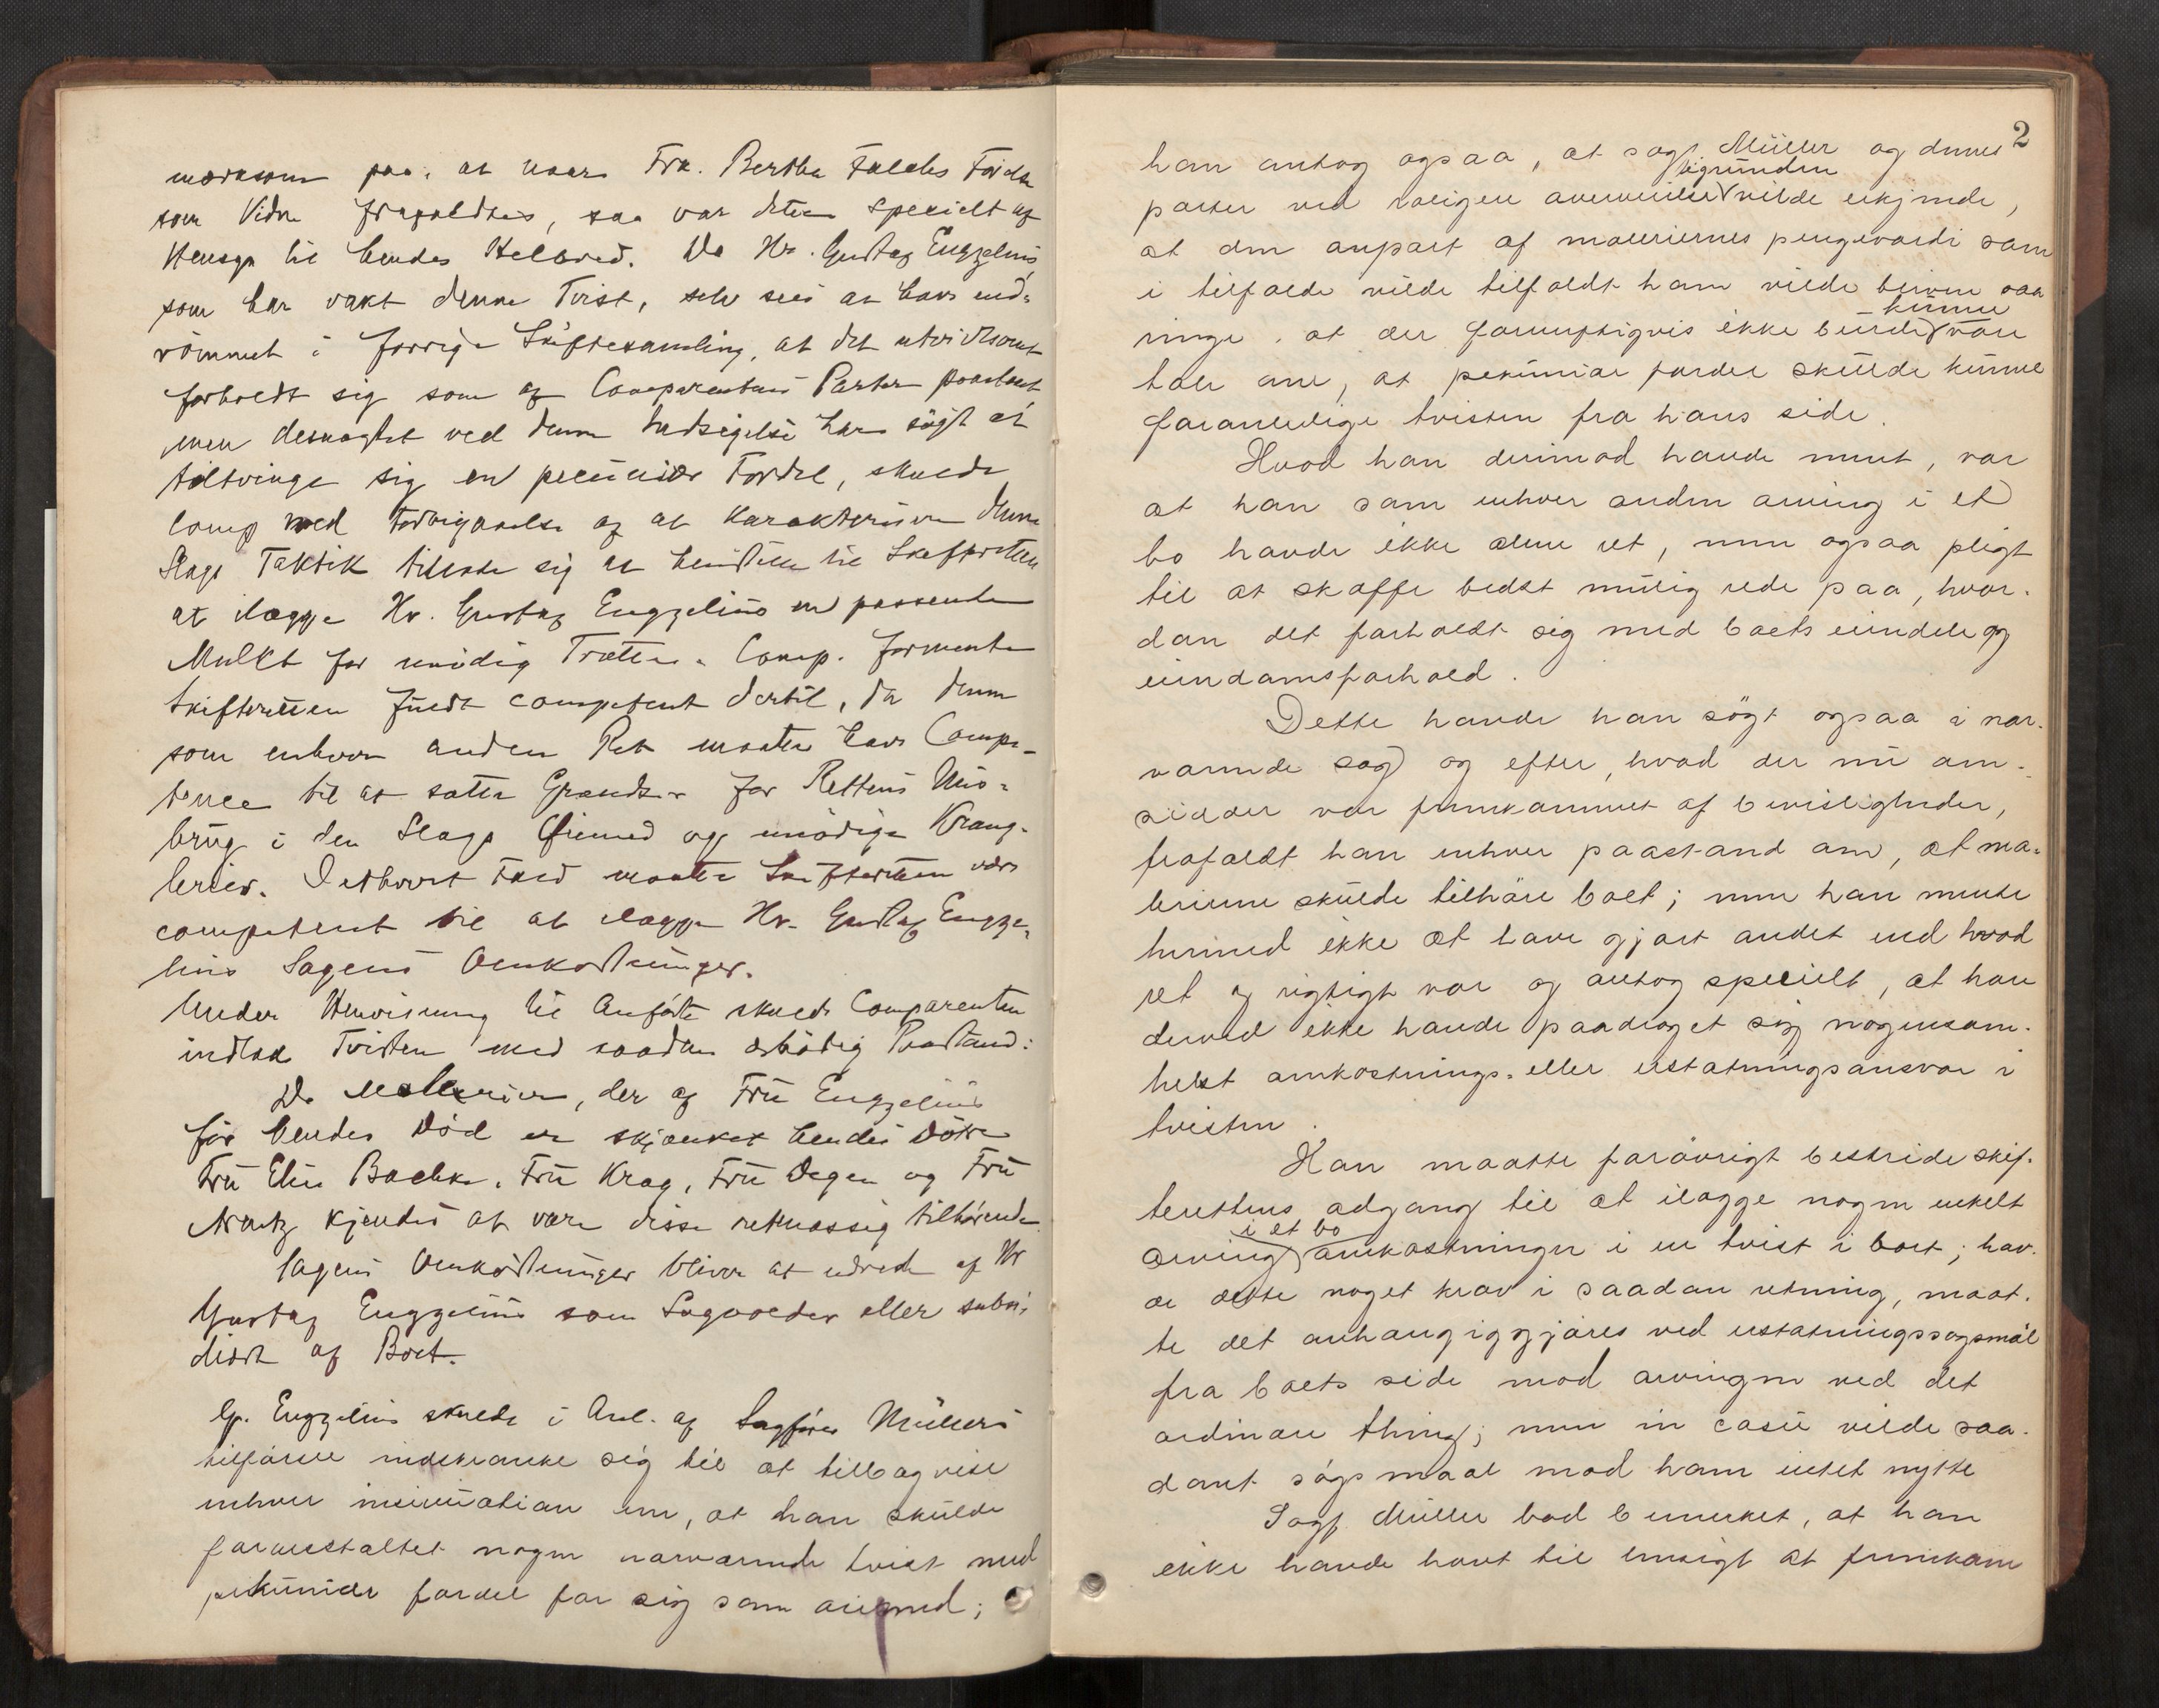 mærksom paa, at naar Frk. Bertha Falchs Førelse
som Vidne frafaldtes, saa var dette specielt af
Hensyn til hendes Helbred. Da Hr. Gustaf Engzelius,
som har vakt denne Tvist, selv sees at have ind-
römmet i forrige Skiftesamling, at det utvivlsomt
forholdt sig som af Comparentens Parter paastaaet,
men desuagtet ved denne Indsigelse har sögt at
tiltvinge sig en pecuniær Fordel, skulde
Comp. med Forbigaaelse af at karakterisere denne
Slags Taktik tillade sig at henstille til Skifteretten
at ilægge Hr. Gustaf Engzelius en passende
Mulkt for unödig Trætte. Comp. formente
Skifteretten fuldt competent dertil, da denne
som enhver anden Ret maatte have Compe-
tence til at sætte Grændser for Rettens Mis-
brug i den Slags Öiemed og unödige Krang-
lerier. I ethvert Fald maatte Skifteretten være
competent til at ilægge Hr. Gustaf Engze-
lius Sagens Omkostninger.
Under Henvisning til Anförte skulde Comparenten
indlade Tvisten med saadan ærbödig Paastand:
De Malerier, der af Fru Engzelius
för hendes Död er skjænket hendes Döttre
Fru Elise Backer, Fru Krag, Fru Degen og Fru
kjendes at være disse retmæssig tilhörende.
Sagens Omkostninger bliver at udrede af Hr
Gustaf Engzelius som Sagvolder eller subsi-
diært af Boet.
G. Engzelius skulde i Anl. af Sagförer Müllers
tilförsel indskrænke sig til at tilbagevise
enhver insinuation om, at han skulde
foranstaltet nogen nærværende tvist med
pekuniær fordel for sig som öiemed;
2
han antog ogsaa, at sagf. Müller og dennes
parter ved roligere overveielse vilde erkjende,
ligrunden
at den anpart af maleriernes pengeværdi som
i tilfælde vilde tilfaldt ham vilde bliven saa
ringe, at der fornuftigvis ikke burde være
kunne
tale om, at pekuniær fordel skulde kunne
foranledige tvisten fra hans side.
Hvad han derimod havde ment, var
at han som enhver anden arving i et
bo havde ikke alene ret, men ogsaa pligt
til at skaffe bedst mulig rede paa, hvor-
dan det forholdt sig med boets eiendele og
eiendomsforhold.
Dette havde han sögt ogsaa i nær-
værende sag og efter, hvad der nu om-
sider var fremkommet af bevisligheder,
frafaldt han enhver paastand om, at ma-
lerierne skulde tilhöre boet; men han mente
hermed ikke at have gjort andet end hvad
ret og rigtigt var og antog specielt, at han
derved ikke havde paadraget sig nogensom-
helst omkostnings- eller erstatningsansvar i
tvisten.
Han maatte foravrigt bestride skif-
terettens adgang til at ilægge nogen enkelt
i et bo
arving omkostninger i en tvist i boet; hav-
de dette noget krav i saadan retning, maat-
te det anhængiggjöres ved erstatningssögsmål
fra boets side mod arvingen ved det
ordinære thing; men in casu vilde saa-
dant sögsmaal mod ham intet nytte
Sagf. Müller bad bemerket, at han
ikke havde havt til hensigt at fremkom